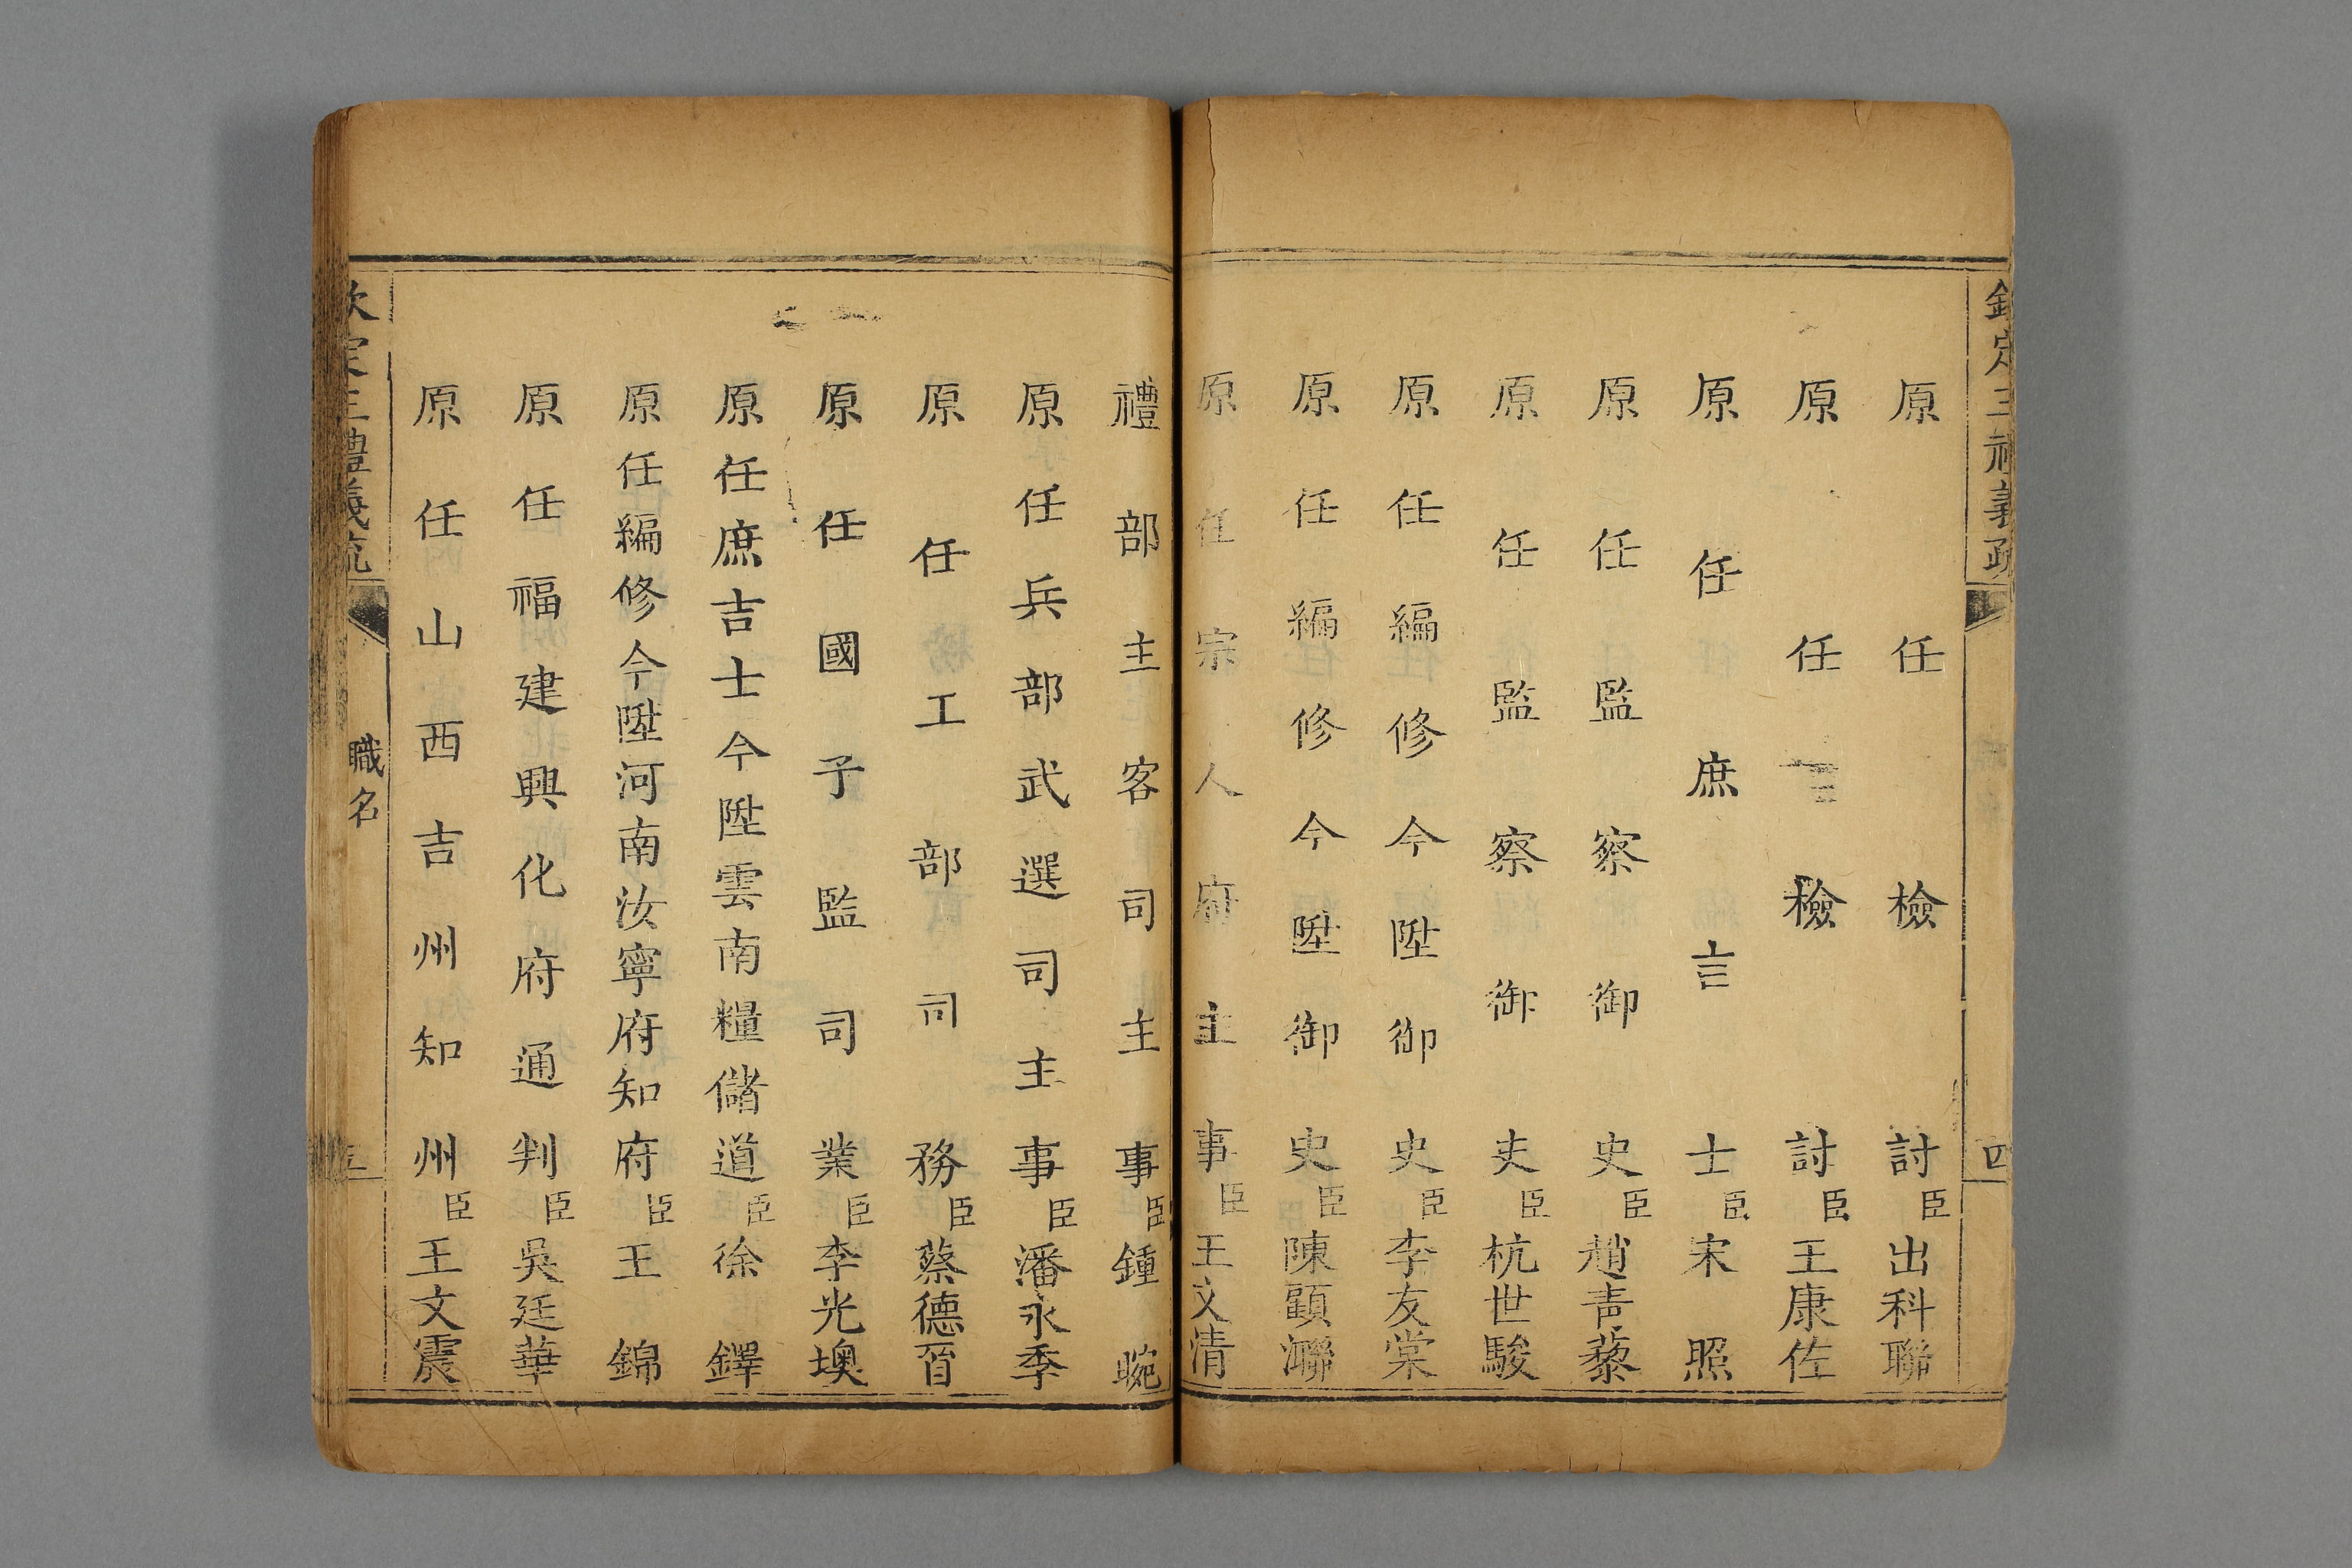 欽定三禮義疏
四
原任檢討臣出科聯
原任檢討臣王康佐
原任庶吉士臣宋照
原任監察御史臣趙青藜
原任監察御史臣杭世駿
原任編修今陞御史臣李友棠
原任編修今陞御史臣陳顧㶚
原任宗人府主事臣王文清
禮部主客司主事臣鍾晼
原任兵部武選司主事臣潘永季
原任工部司務臣蔡德晉
原任國子監司業臣李光墺
原任庶吉士今陞雲南糧儲道臣徐鐸
原任編修今陞河南汝寧府知府臣王錦
原任福建興化府通判臣吳廷華
原任山西吉州知州臣王文震
欽定三禮義疏
職名
五